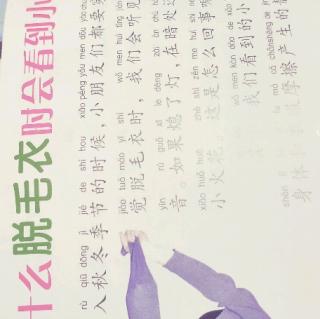 什么脱毛衣时会看到小
rù qiū dōng jì jié de shí hou xiǎo péng yǒu men dōu yào
入秋冬季节的时候，小朋友们都要
jiào tuō máo yī shí wǒ men huì tīng
觉脱毛衣时，我们会听见
yīn rú guǒ xī le dēng zài àn chù
音。如果熄了灯，在暗处
xiǎo huǒ huā zhè shì zěn me huí shì
小火花。这是怎么回事
wǒ men kàn dào de xiǎo
我们看到的小
shēn tǐ mó cā chǎn shēng de
身体 摩擦产生的